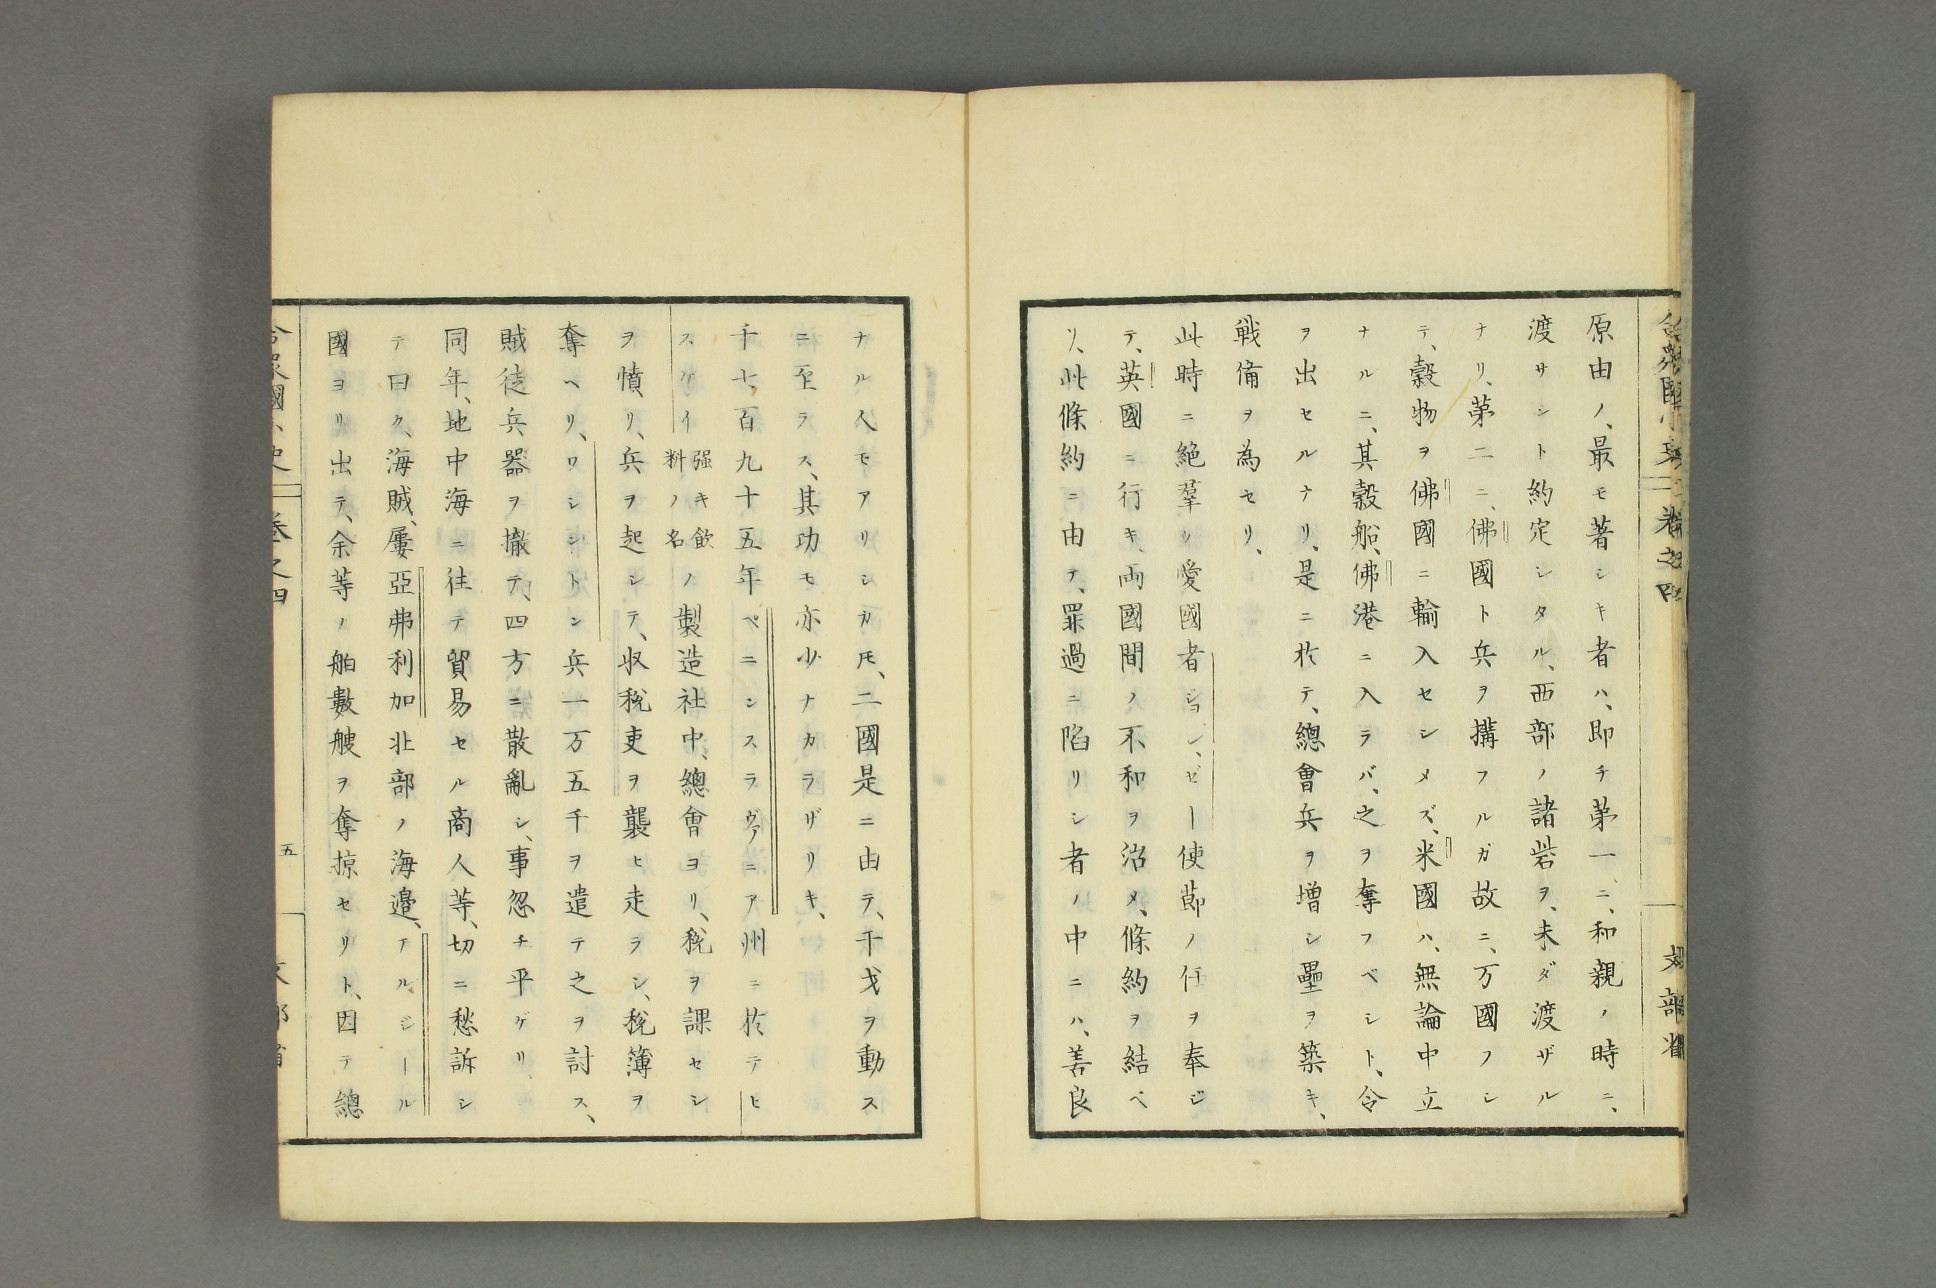 合衆國小史 卷之四 文部省
原由ノ、最モ著シキ者ハ、即チ第一ニ、和親ノ時ニ、
渡サント約定シタル、西部ノ諸砦ヲ、未ダ渡ザル
ナリ、第二ニ、佛國ト兵ヲ搆フルガ故ニ、万國ノシ
テ、穀物ヲ佛國ニ輸入セシメズ、米國ハ、無論中立
ナルニ、其穀船、佛港ニ入ラバ、之ヲ奪フベシト、令
ヲ出セルナリ、是ニ於テ、總會兵ヲ増シ壘ヲ築キ、
戦備ヲ為セリ、
此時ニ絶羣ノ愛國者ジョン、ゼー使節ノ任ヲ奉ジ
テ、英國ニ行キ、両國間ノ不和ヲ治メ、條約ヲ結ベ
リ、此條約ニ由テ、罪過ニ陷リシ者ノ中ニハ、善良
ナル人モアリシカ𪜈、二國是ニ由テ、干戈ヲ動ス
ニ至ラス、其功モ亦少ナカラザリキ、
千七百九十五年ペニンスラヴァニア州ニ於テヒ
スケイ强キ飲料ノ名ノ製造社中、總會ヨリ、税ヲ課セシ
ヲ憤リ、兵ヲ起シテ、收税吏ヲ襲ヒ走ラシ、税簿ヲ
奪ヘリ、ワシントン兵一万五千ヲ遣テ之ヲ討ス、
賊徒兵器ヲ撤テ、四方ニ散亂シ、事忽チ平ゲリ、
同年、地中海ニ往テ貿易セル商人等、切ニ愁訴シ
テ曰ク、海賊、屢亞弗利加北部ノ海邉、アルジール
國ヨリ出テ、余等ノ舶數艘ヲ奪掠セリト、因テ總
合衆國小史 卷之四 五 文部省